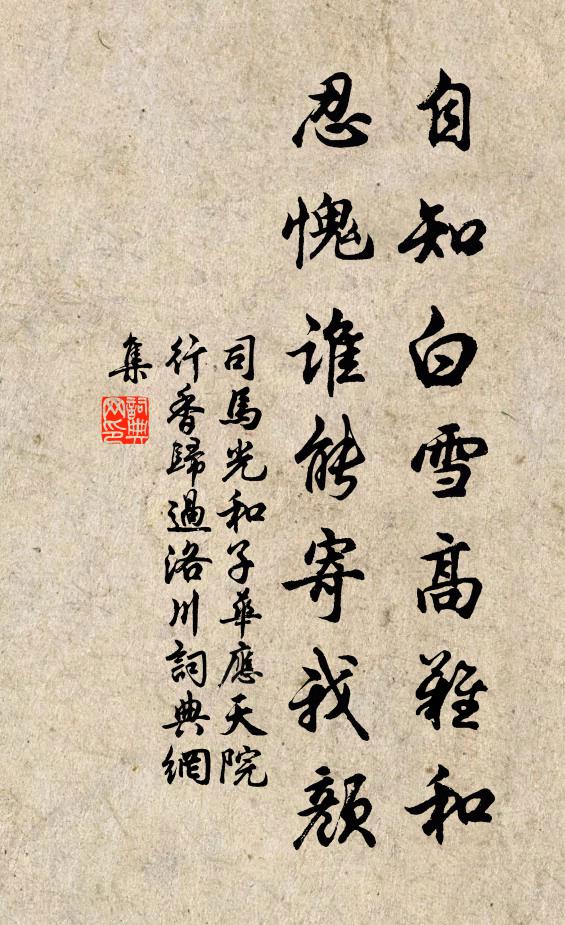 自知白雪高難和
忍愧誰能寄我顏
司馬光和子華應天院
行香歸過洛川詞典網
集
詞典
网印